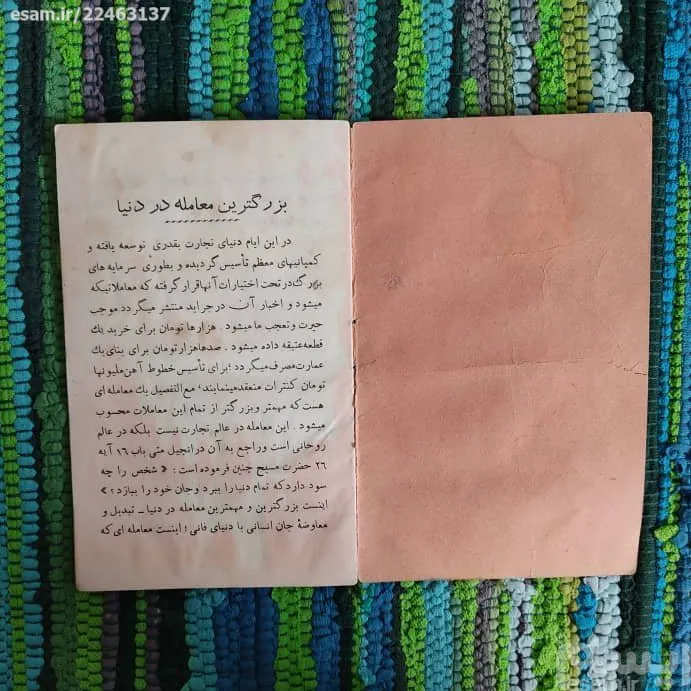 esam.ir/22463137
بزرگترین معامله در دنیا
در این ایام دنیای تجارت بقدری توسعه یافته و
کمپانیهای معظم تأسیس گردیده و بطوری سرمایه های
بزرگ در تحت اختیارات آنها قرار گرفته که معاملاتیکه
میشود و اخبار آن در جراید منتشر میگردد موجب
حیرت و تعجب ما میشود . هزارها تومان برای خرید یك
قطعه عتیقه داده میشود . صدها هزار تومان برای بنای یك
عمارت مصرف میگردد ؛ برای تأسیس خطوط آهن ملیونها
تومان کنترات منعقد مینمایند ؛ مع التفصیل یك معامله ای
هست که مهمتر و بزرگتر از تمام این معاملات محسوب
میشود . این معامله در عالم تجارت نیست بلکه در عالم
روحانی است و راجع به آن در انجیل متی باب ۱۶ آیه
۲۶ حضرت مسیح چنین فرموده است : « شخص را چه
سود دارد که تمام دنیا را ببرد و جان خود را ببازد ؟ »
اینست بزرگترین و مهمترین معامله در دنیا ــ تبدیل و
معاوضهٔ جان انسانی با دنیای فانی ؛ اینست معامله ای که